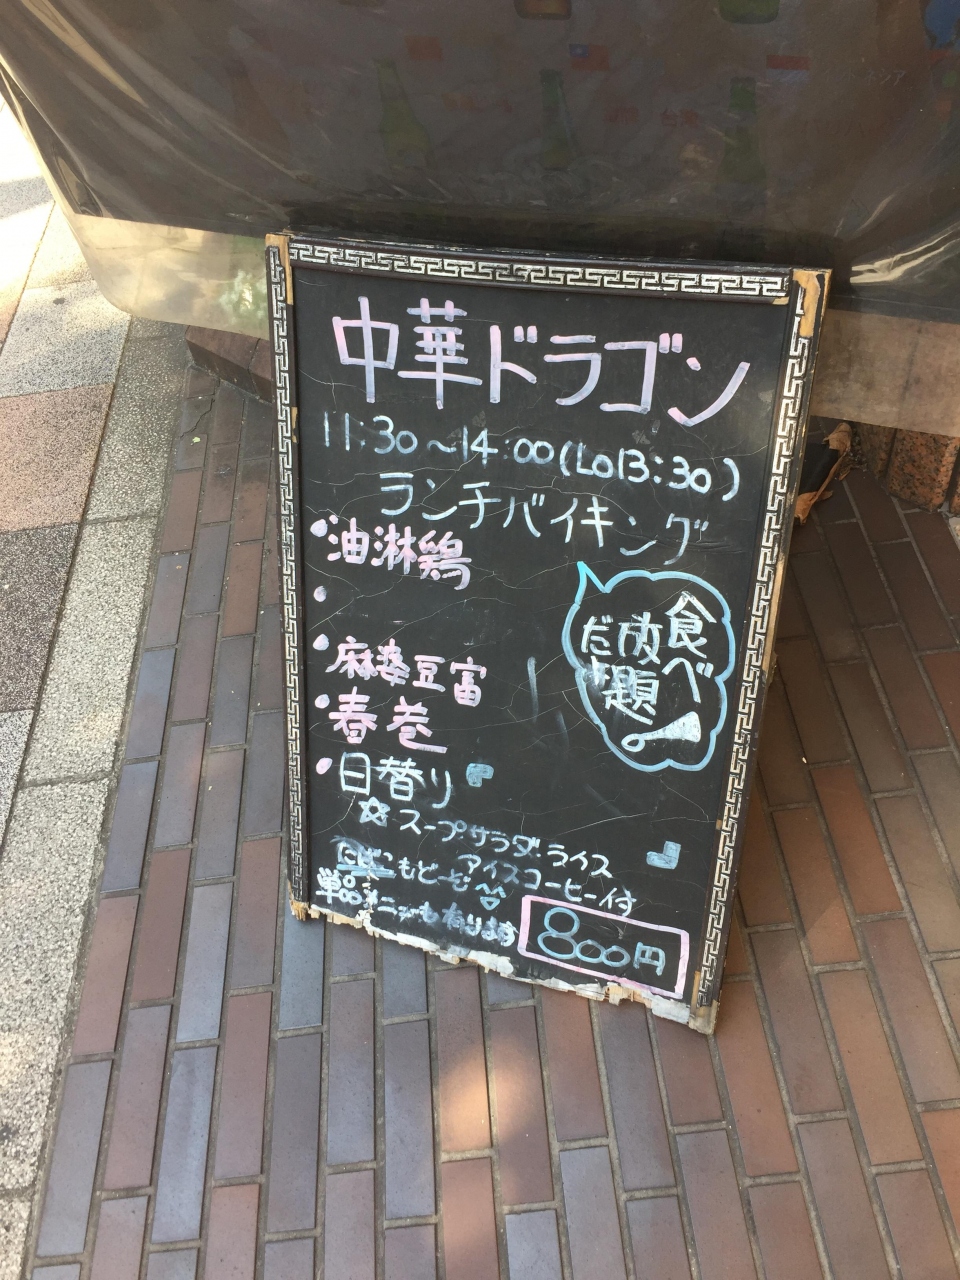 中華ドラゴン
11:30～14:00(Lo13:30)
ランチバイキング
・油淋鶏
・
・麻婆豆富
・春巻
・日替り
食べ
放題
だ
☆スープ・サラダ・ライス
アイスコーヒー付
たばこもどーぞ
単品メニューも有ります
800円